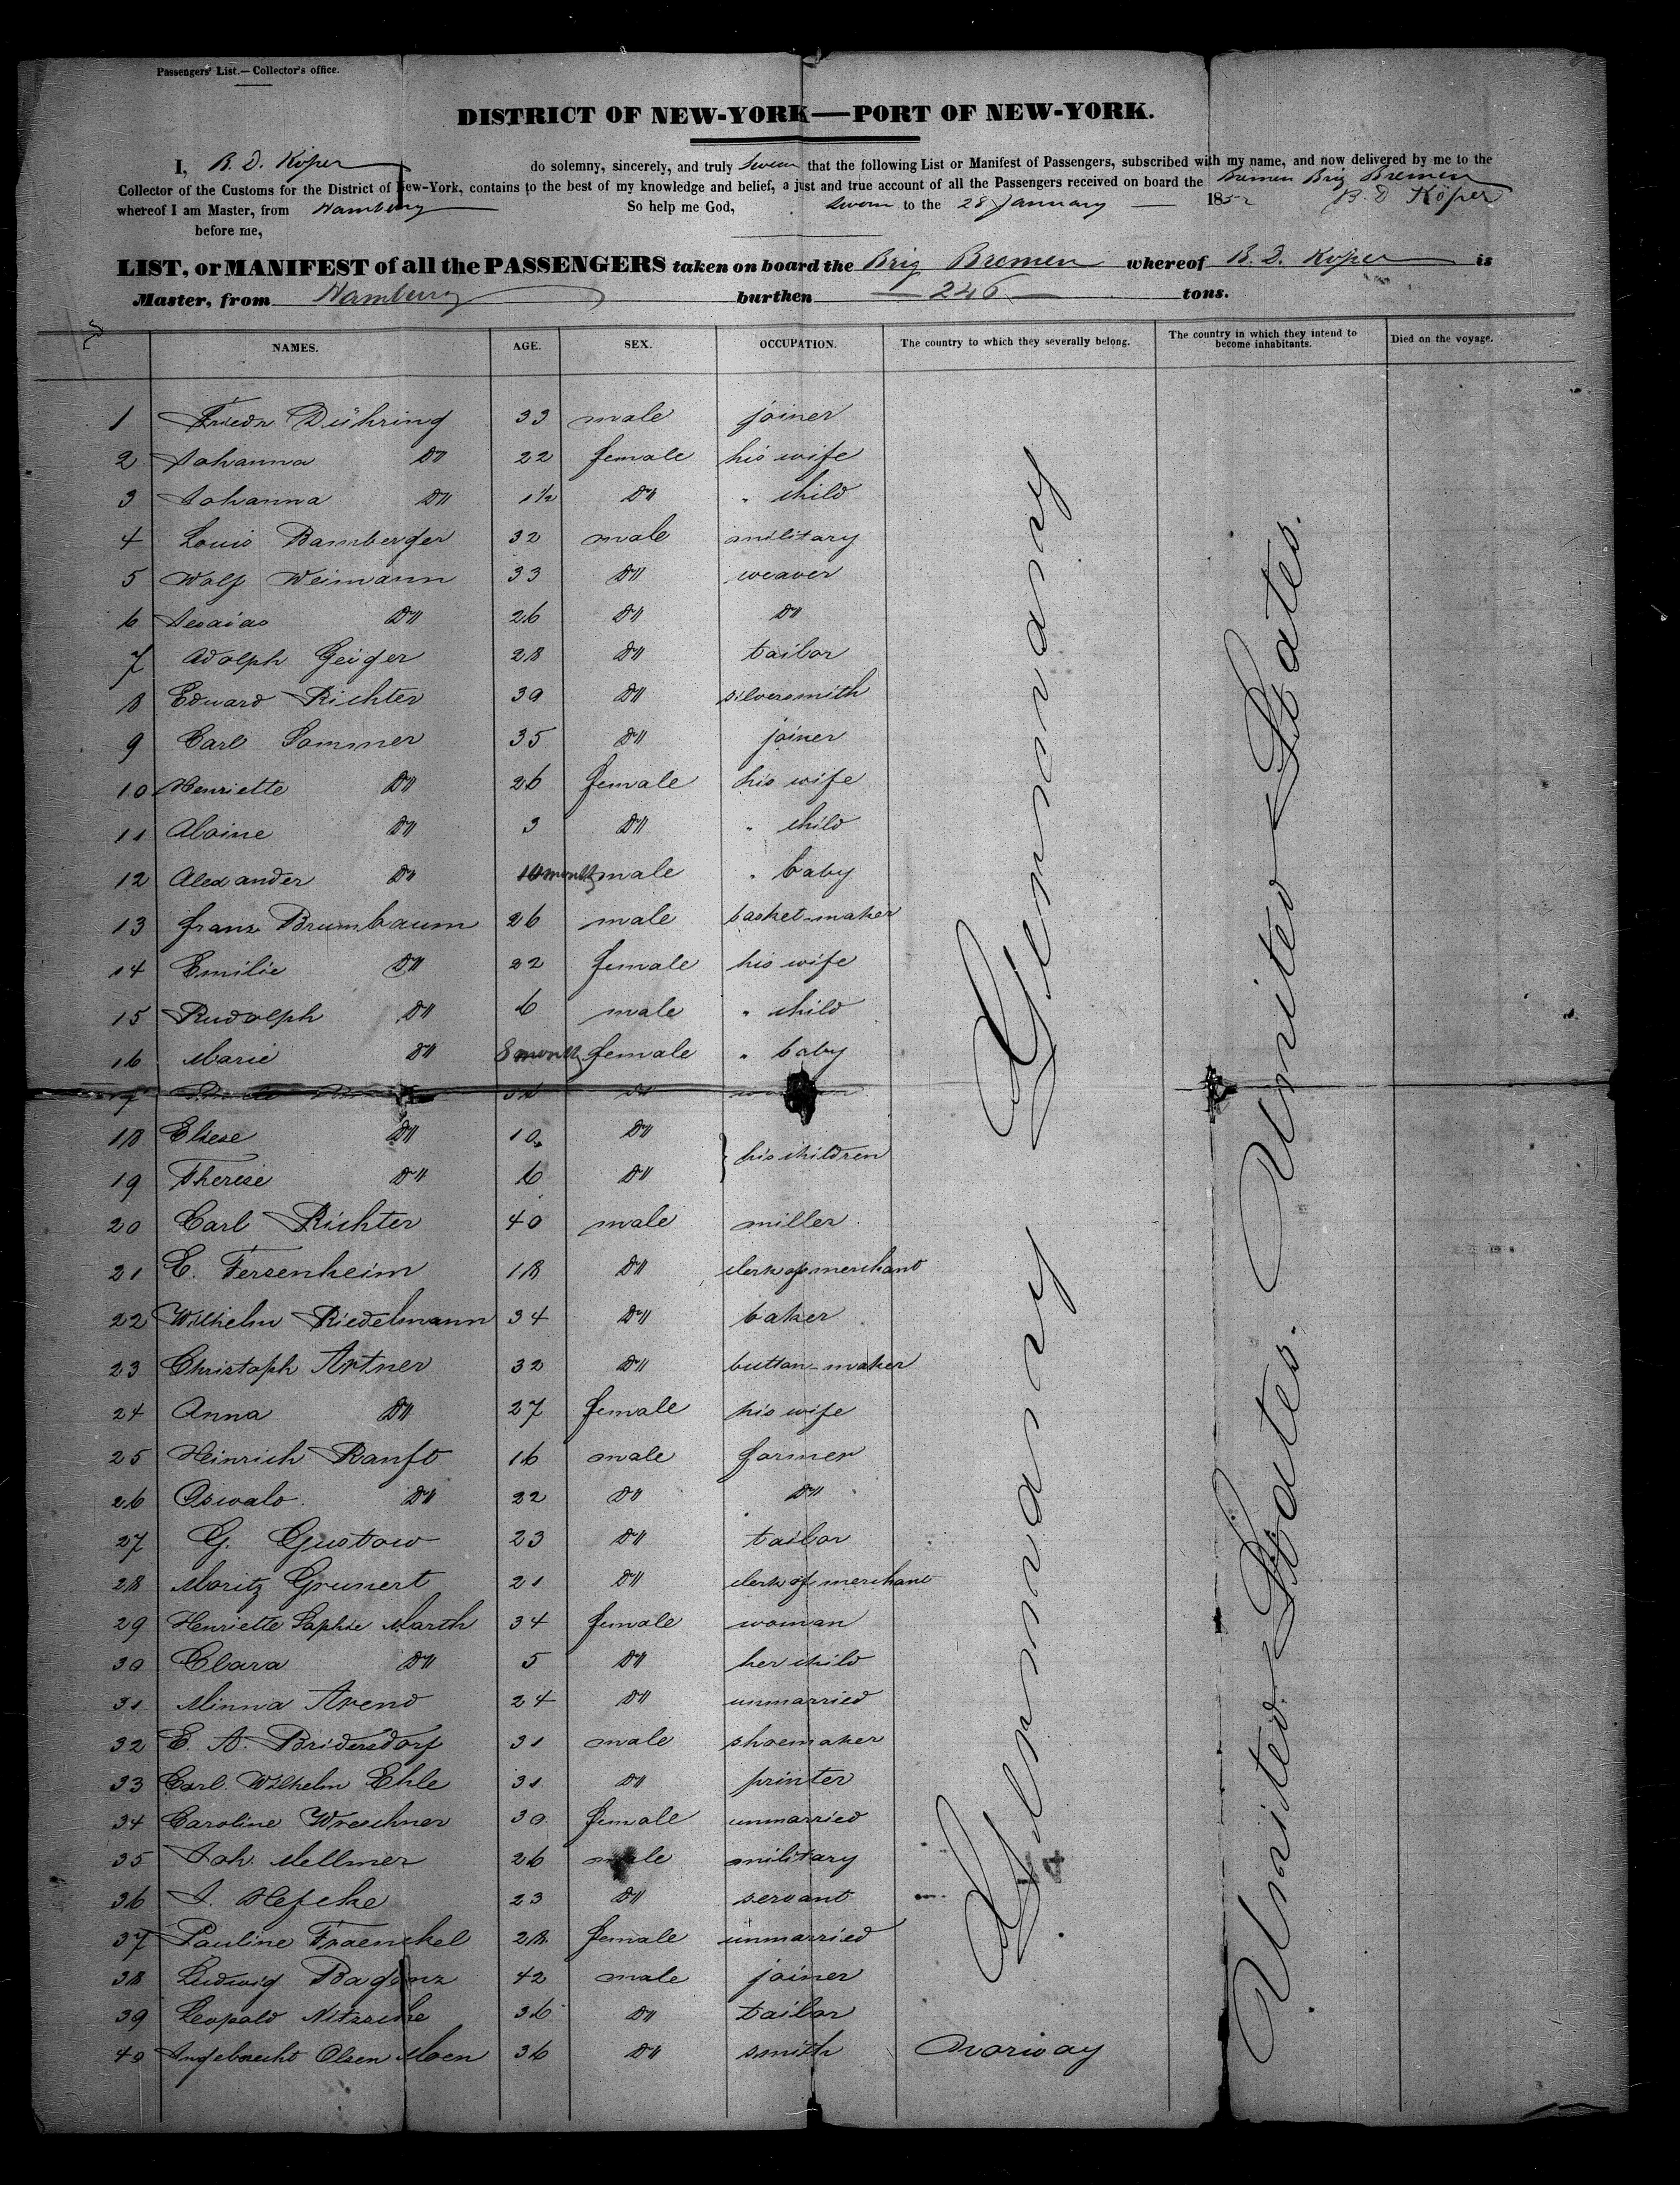 Passengers' List.—Collector's office.
DISTRICT OF NEW-YORK—PORT OF NEW-YORK.
I, B. D. Köper do solemny, sincerely, and truly swear that the following List or Manifest of Passengers, subscribed with my name, and now delivered by me to the
Collector of the Customs for the District of New-York, contains to the best of my knowledge and belief, a just and true account of all the Passengers received on board the Bremen Brig Bremen
whereof I am Master, from Hamburg So help me God, sworn to the 28 January 1852 B. D Köper
before me,
LIST, or MANIFEST of all the PASSENGERS taken on board the Brig Bremen whereof B. D. Köper is
Master, from Hamburg burthen 246 tons.
NAMES. AGE. SEX. OCCUPATION. The country to which they severally belong. The country in which they intend to become inhabitants. Died on the voyage.
1 Friedr Dühring 33 male joiner
2 Johanna Do 22 female his wife
3 Johanna Do 1½ Do " child
4 Louis Bamberger 32 male military
5 Wolf Weimann 33 Do weaver
6 Jesaias Do 26 Do Do
7 Adolph Geiger 28 Do tailor
8 Edward Richter 39 Do silversmith
9 Carl Sommer 35 Do joiner
10 Henriette Do 26 female his wife
11 Alvine Do 3 Do " child
12 Alexander Do 10 month male " baby
13 Franz Brumbaum 26 male basket-maker
14 Emilie Do 22 female his wife
15 Rudolph Do 6 male " child
16 Marie Do 8 month female " baby
17 Do
18 Eliese Do 10 Do
his children
19 Therese Do 6 Do
20 Carl Richter 40 male miller
21 E. Fersenheim 18 Do clerk of merchant
22 Wilhelm Riedelmann 34 Do baker
23 Christoph Artner 32 Do button-maker
24 Anna Do 27 female his wife
25 Heinrich Ranft 16 male farmer
26 Oswald Do 22 Do Do
27 G. Gustow 23 Do tailor
28 Moritz Grunert 21 Do clerk of merchant
29 Henriette Sophie Marth 34 female woman
30 Clara Do 5 Do her child
31 Minna Arend 24 Do unmarried
32 E. A. Bridersdorf 31 male shoemaker
33 Carl Wilhelm Ehle 31 Do printer
34 Caroline Wreschner 30 female unmarried
35 Joh. Mellmer 26 male military
36 J. Hefcke 23 Do servant
37 Pauline Fraenckel 28 female unmarried
38 Ludwig Baganz 42 male joiner
39 Leopold Nitzsche 36 Do tailor
40 Ingebrecht Olsen Moen 36 Do smith Norway
Germany Germany
United States. United States.